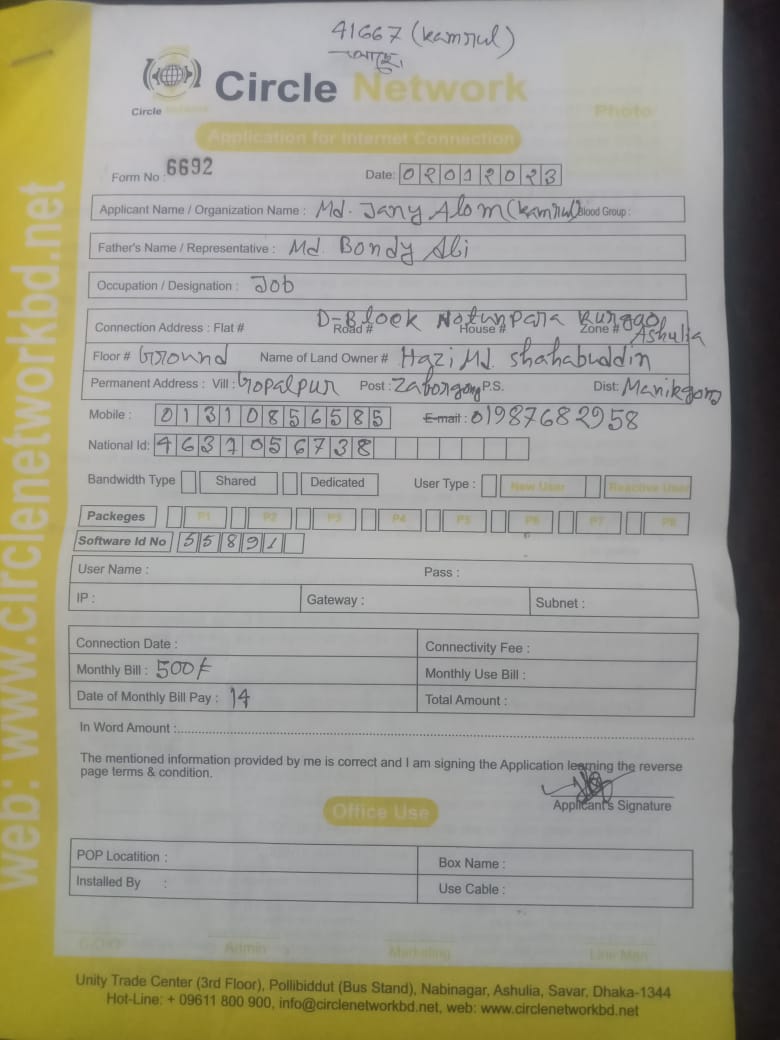 41667 (kamrul)
Circle Network
Circle
Photo
Application for Internet Connection
Form No : 6692 Date: 02012023
Applicant Name / Organization Name : Md. Jany Alom (kamrul) Blood Group :
Father's Name / Representative : Md. Bondy Ali
Occupation / Designation : Job
Connection Address : Flat # Road # House # Zone # D-Block Notunpara Ashulia
Floor # Ground Name of Land Owner # Hazi Md. shahabuddin
Permanent Address : Vill : Gopalpur Post : P.S. Dist: Manikgonj
Mobile : 01310856585 E-mail : 01987682958
National Id: 4637056738
Bandwidth Type Shared Dedicated User Type : New User Reactive User
Packeges P1 P2 P3 P4 P5 P6 P7 P8
Software Id No 55891
User Name : Pass :
IP : Gateway : Subnet :
Connection Date : Connectivity Fee :
Monthly Bill : 500/- Monthly Use Bill :
Date of Monthly Bill Pay : 14 Total Amount :
In Word Amount :
The mentioned information provided by me is correct and I am signing the Application learning the reverse
page terms & condition.
Applicant's Signature
Office Use
POP Locatition : Box Name :
Installed By : Use Cable :
C.O.O Admin Marketing Line Man
Unity Trade Center (3rd Floor), Pollibiddut (Bus Stand), Nabinagar, Ashulia, Savar, Dhaka-1344
Hot-Line: + 09611 800 900, info@circlenetworkbd.net, web: www.circlenetworkbd.net
web: www.circlenetworkbd.net